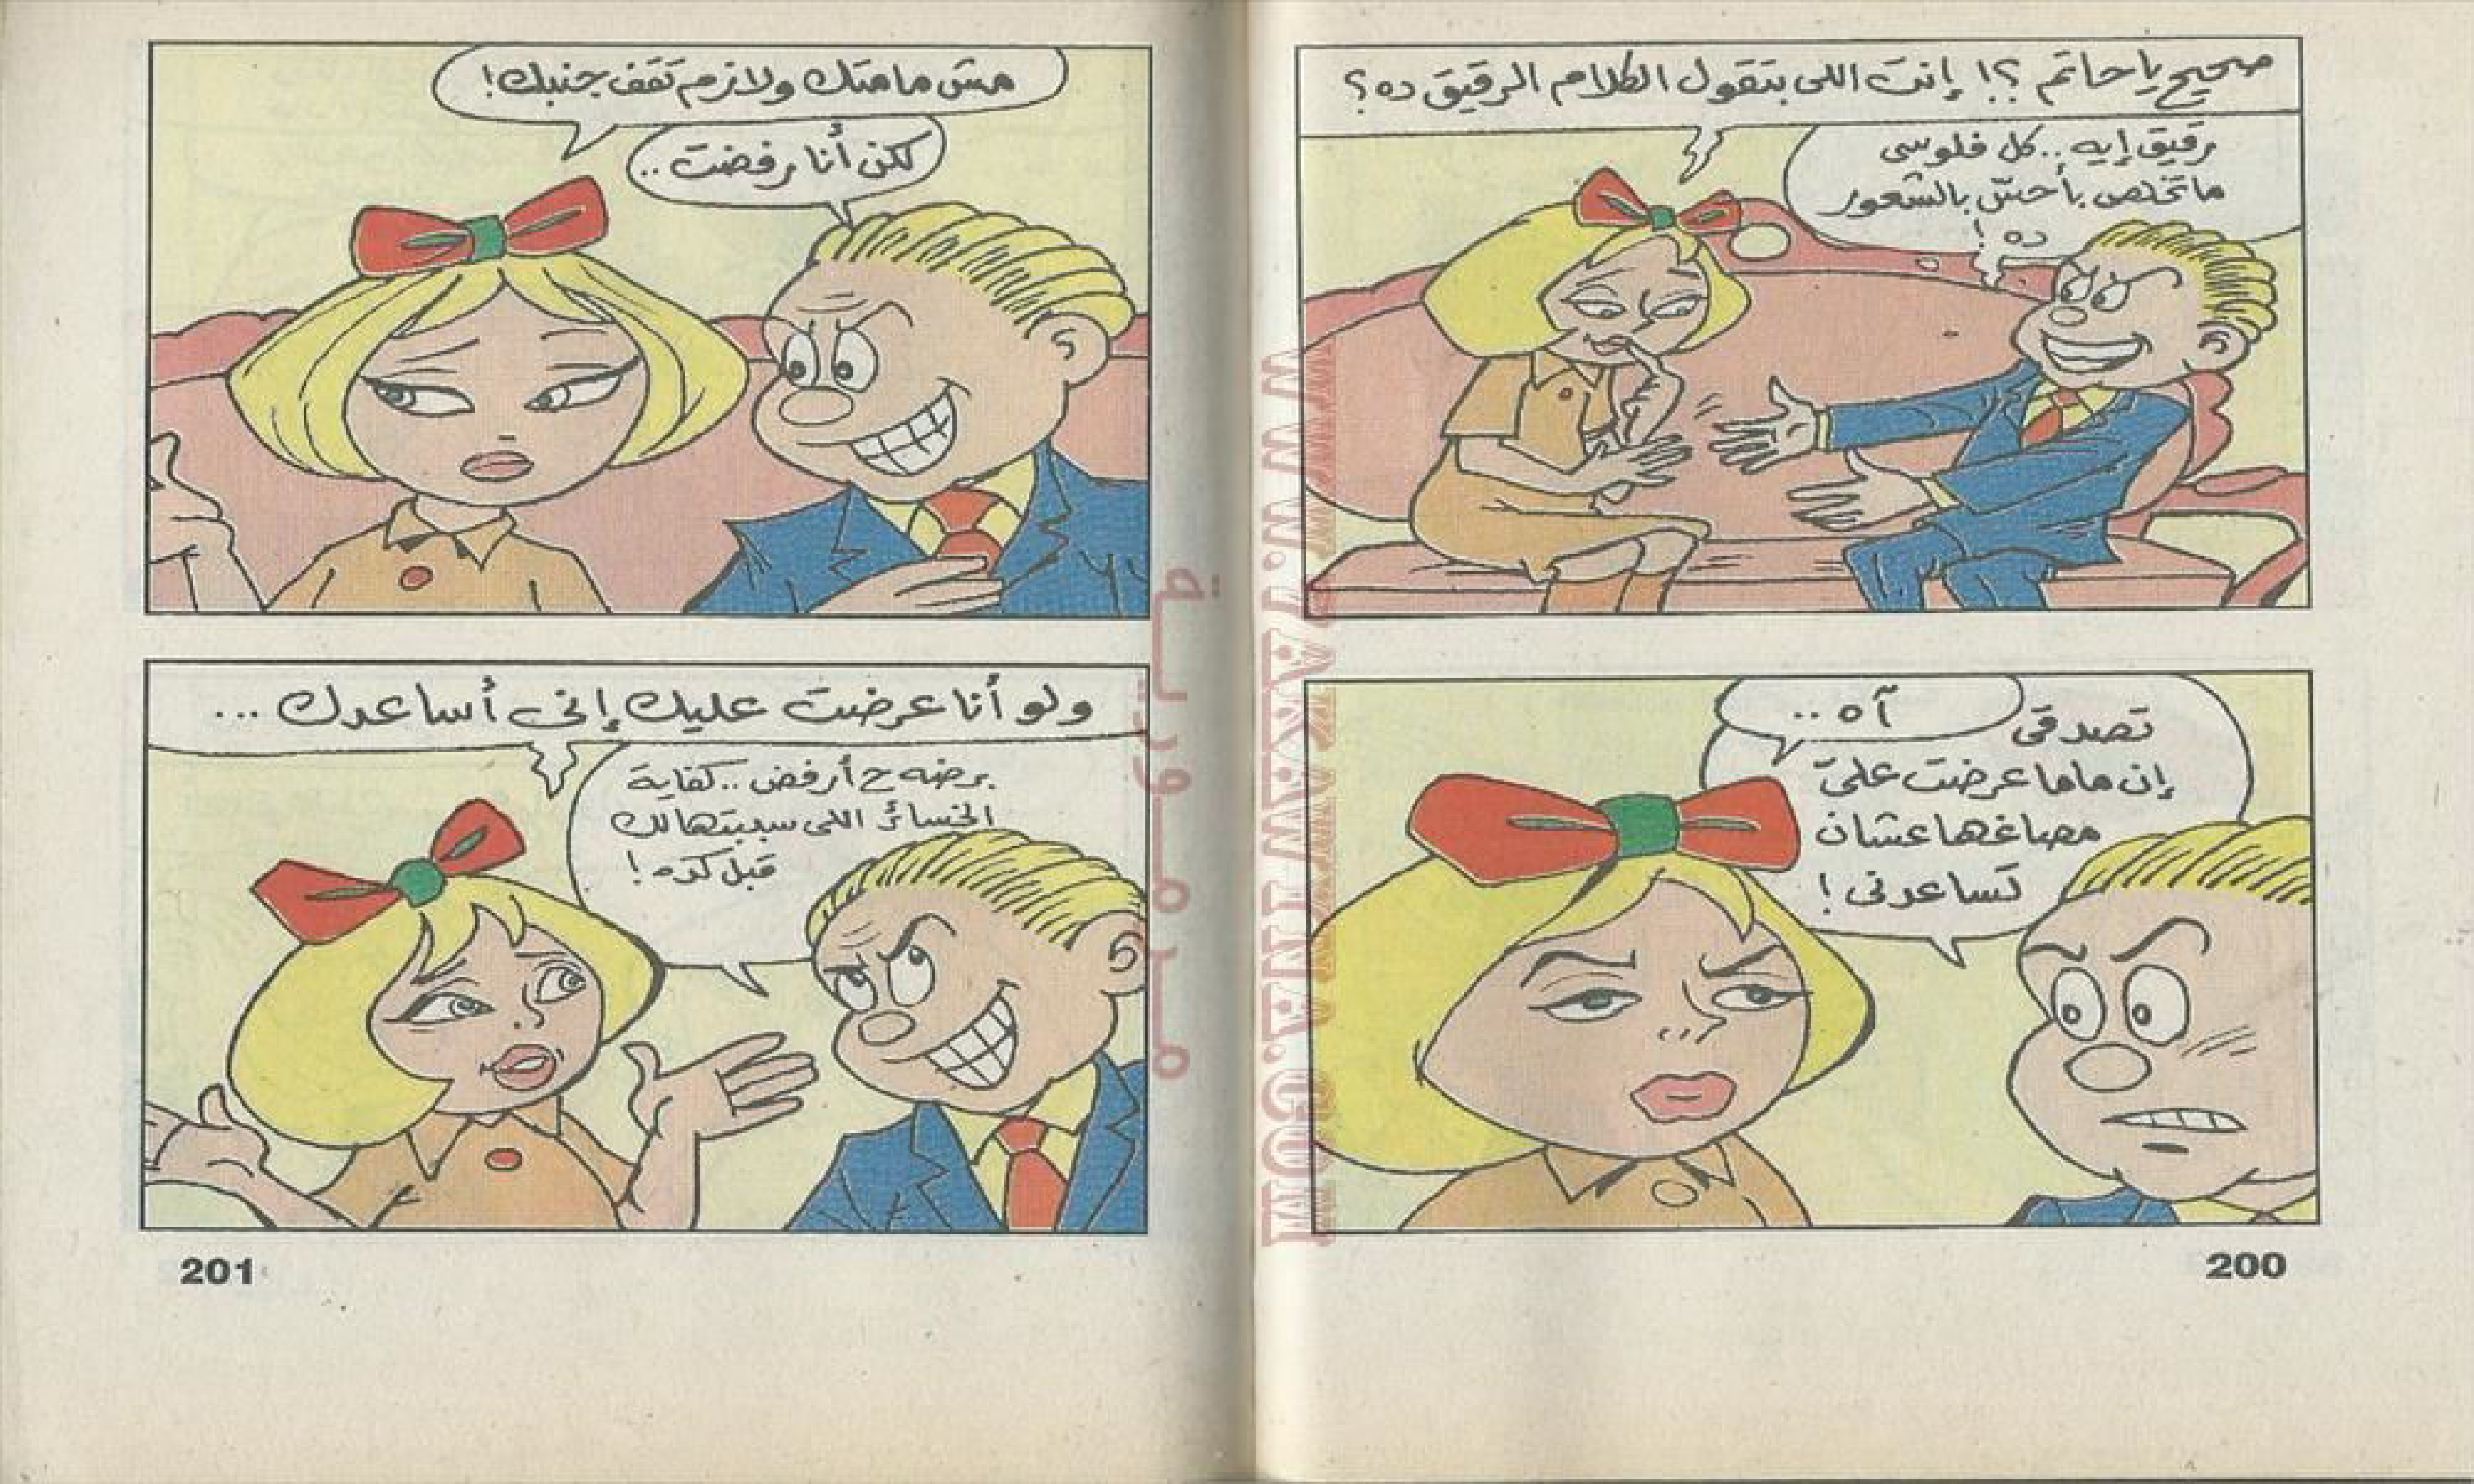 صحيح يا حاتم ؟! إنت اللى بتقول الكلام الرقيق ده ؟
رقيق إيه .. كل فلوسى
ما تخلص بأحسّ بالشعور
ده !
آه ..
تصدقى
إن ماما عرضت علىّ
مصاغها عشان
تساعدنى !
200
مش مامتك ولازم تقف جنبك !
لكن أنا رفضت ..
ولو أنا عرضت عليك إنى أساعدك ...
برضه ح أرفض .. كفاية
الخسائر اللى سببتها لك
قبل كده !
201
مدمورية
WWW.AREWENTNA.COM